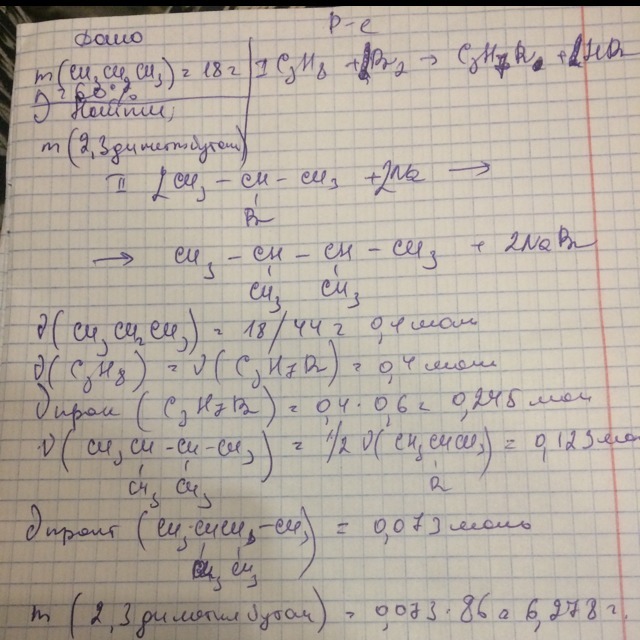 Дано
Р-е
m(CH3CH2CH3) = 18г
I C3H8 + Br2 → C3H7Br + HBr
60%
Найти:
m(2,3диметбутан)
II 2CH3 - CH - CH3 + 2Na →
Br
→ CH3 - CH - CH - CH3 + 2NaBr
CH3 CH3
ν(CH3CH2CH3) = 18/44 = 0,4 моль
ν(C3H8) = ν(C3H7Br) = 0,4 моль
ν практ (C3H7Br) = 0,4 · 0,6 = 0,245 мол
ν(CH3CH - CH - CH3) = 1/2 ν(CH3CHCH3) = 0,123 мо
CH3 CH3
ν практ (CH3 - CHCH - CH3) = 0,073 моль
CH3 CH3
m(2,3диметилбутан) = 0,073 · 86 = 6,278 г.